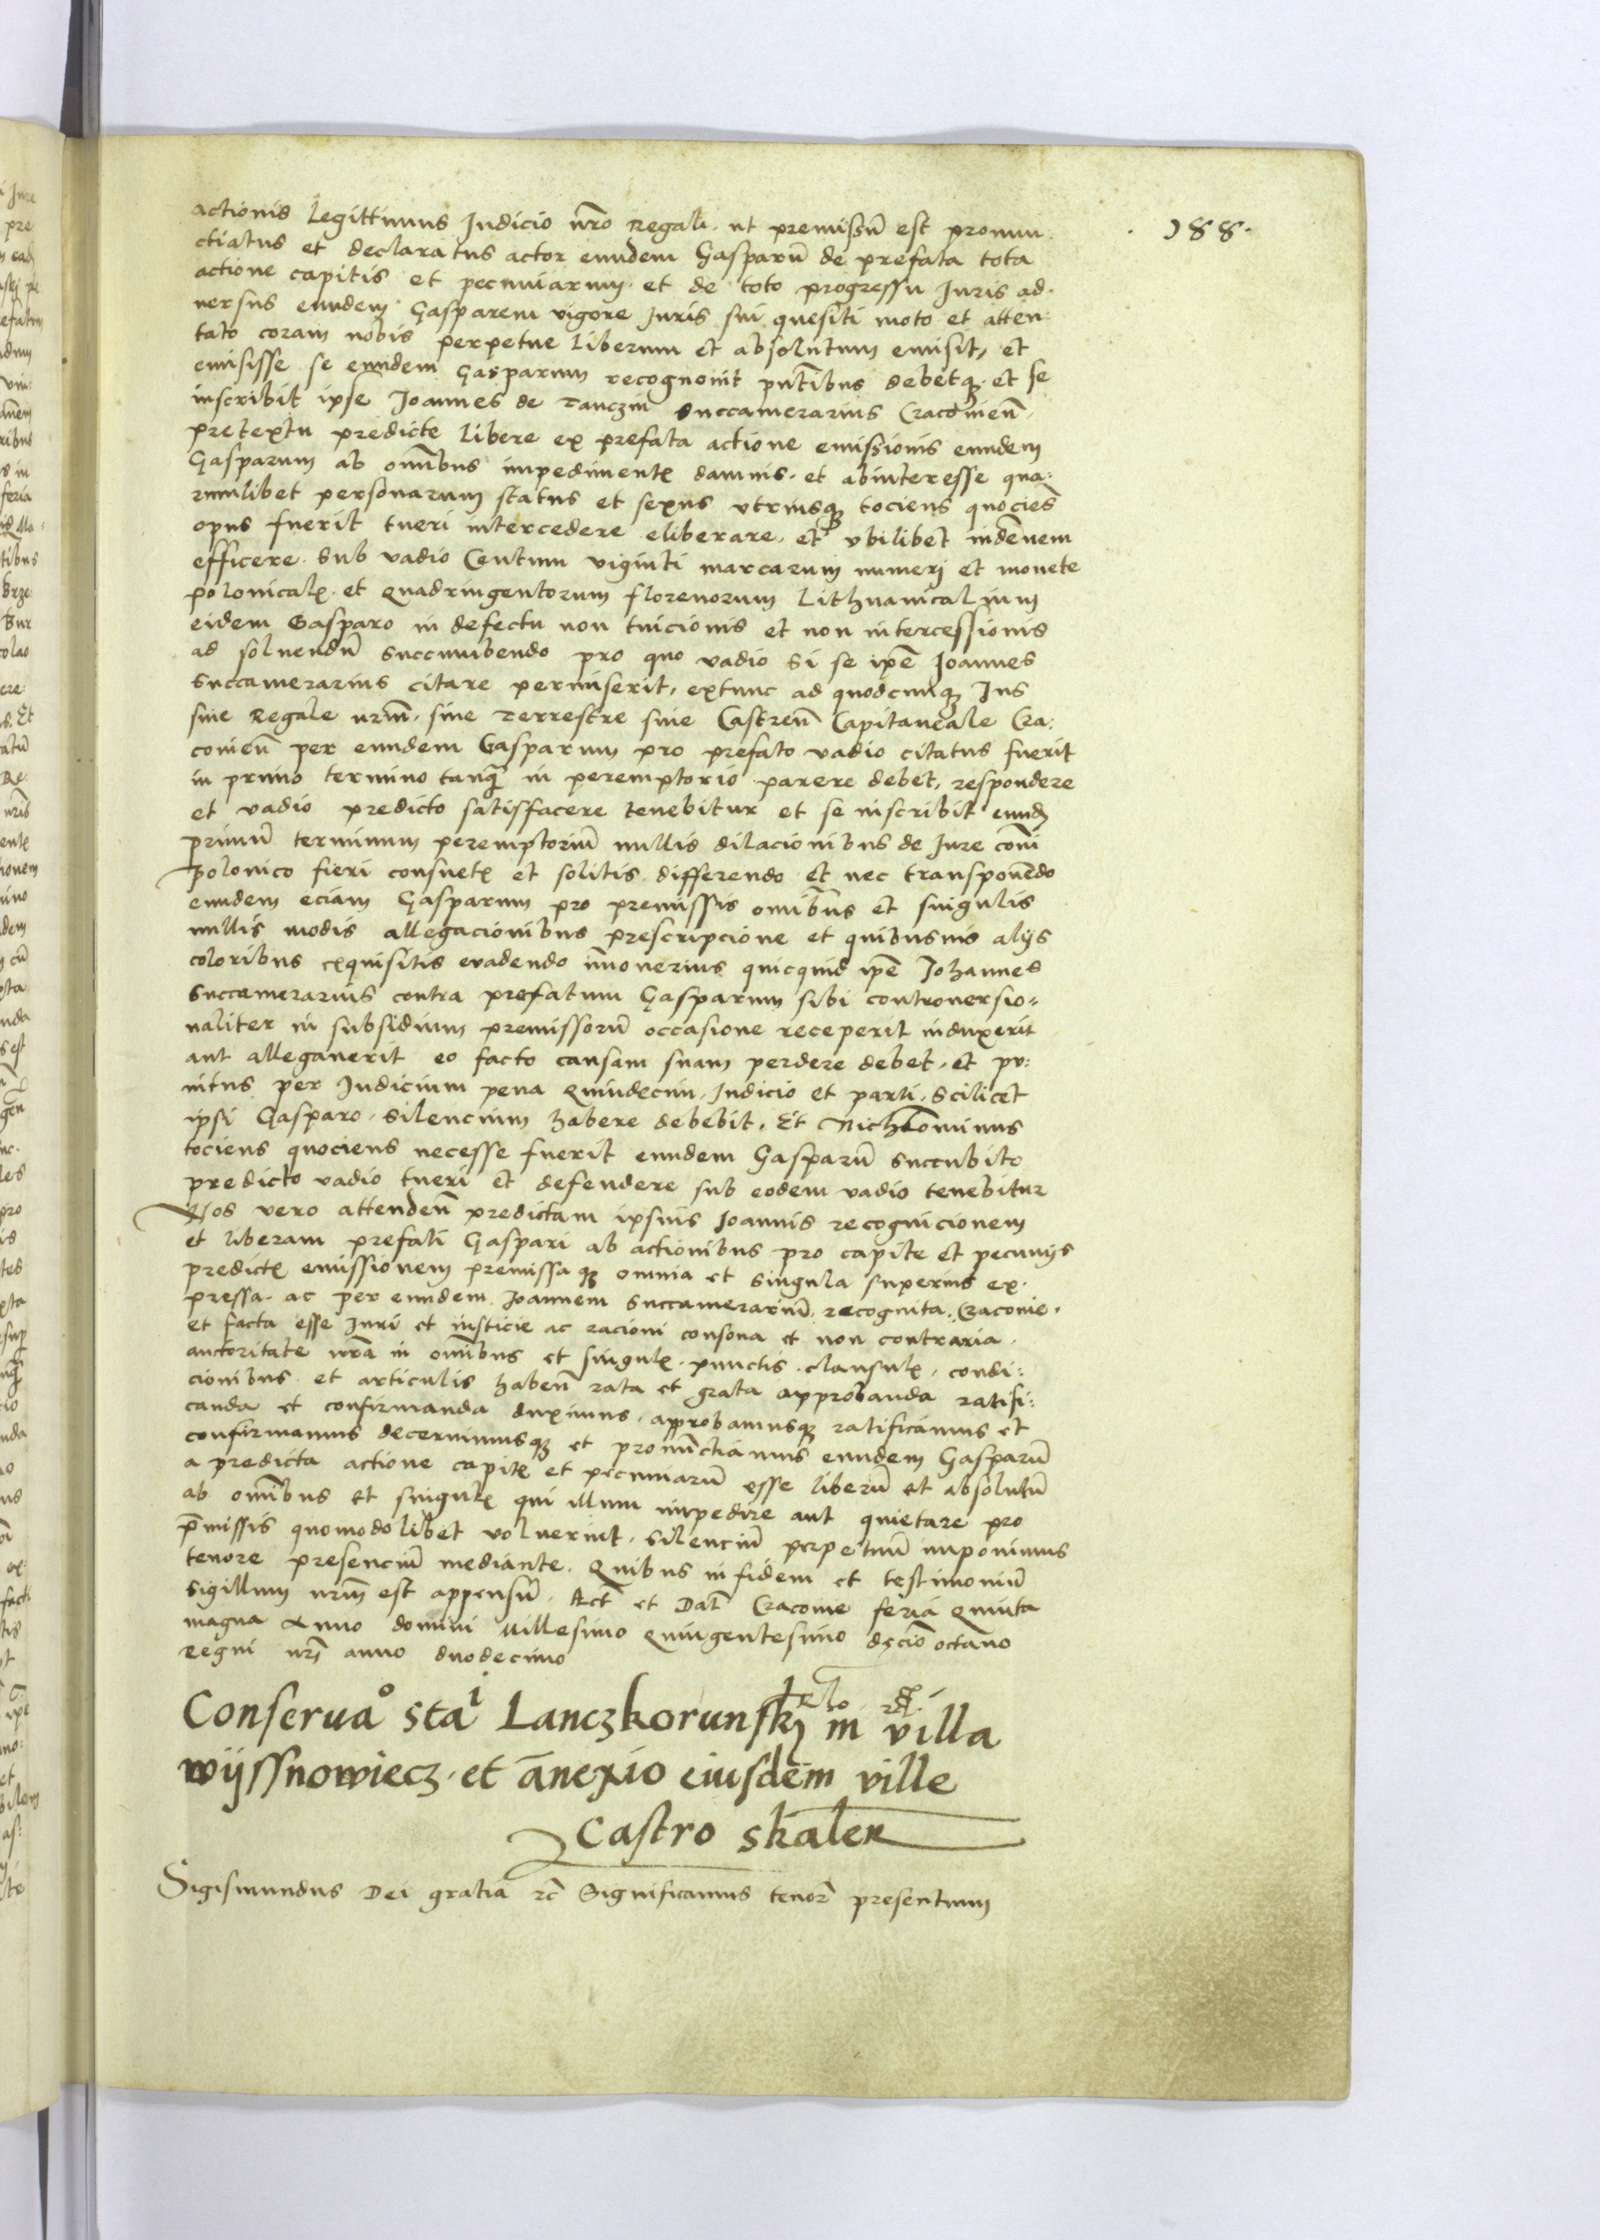 · 188 ·
actionis legittimus Iudicio nr̄o Regali · ut premissū est pronun
ctiatus et declaratus actor eundem Gasparū de prefata tota
actione capitis et pecuniarum · et de toto progressu Iuris ad-
uersus eundem Gasparem vigore Iuris sui quesiti moto et atten-
tato coram nobis perpetue liberum et absolutum emisit, et
emisisse se eundem Gasparum recognouit pn̄tibus debetqȝ et se
inscribit ipse Joannes de Tanczin Succamerarius Cracouien̄
pretextu predicte libere ex prefata actione emissionis eundem
Gasparum ab om̄ibus impedimentꝭ damnis · et abinteresse qua-
rumlibet personarum status et sexus vtriusqȝ tociens quociens
opus fuerit tueri intercedere eliberare · et vbilibet indēnem
efficere · Sub vadio Centum viginti marcarum numerj et monete
polonicalꝭ · et quadringentorum florenorum Lithuanicalium
eidem Gasparo in defectu non tuicionis et non intercessionis
ad soluendū succumbendo pro quo vadio si se ip̄e Joannes
Succamerarius citare permiserit, extunc ad quodcunqȝ Ius
siue Regale nrm̄ · siue Terrestre siue Castren̄ Capitaneale Cra-
couien̄ per eundem Gasparum pro prefato vadio citatus fuerit
in primo termino tanq̄ in peremptorio parere debet, respondere
et vadio predicto satisfacere tenebitur et se inscribit eundȝ
primū terminum peremptoriū nullis dilacionibus de Iure com̄i
Polonico fieri consuetꝭ et solitis differendo et nec transponēdo
eundem eciam Gasparum pro premissis om̄ibus et singulis
nullis modis allegacionibus prescripcione et quibusuis alijs
coloribus exquisitis euadendo īmouerius quicquid ip̄e Johannes
Succamerarius contra prefatum Gasparum sibi controuersio-
naliter in subsidium premissorū occasione receperit induxerit
aut allegauerit eo facto causam suam perdere debet · et pu-
nitus per Iudicium pena quindecim · Iudicio et parti · Scilicet
ipsi Gasparo · silencium habere debebit · Et Nichilominus
tociens quociens necesse fuerit eundem Gasparū succubito
predicto vadio tueri et defendere sub eodem vadio tenebitur
Nos vero attenden̄ predictam ipsius Joannis recognicionem
et liberam prefati Gaspari ab actionibus pro capite et pecunijs
predictꝭ emissionem premissaqȝ omnia et singula superius ex-
pressa · ac per eundem Joannem Succamerariū recognita Cracouie ·
et facta esse Iuri et iusticie ac racioni consona et non contraria ·
auctoritate nr̄a in om̄ibus et singulꝭ · punctis · clausulꝭ · condi-
cionibus · et articulis haben̄ rata et grata approbanda ratifi-
canda et confirmanda duximus · approbamusqȝ ratificamus et
confirmamus decernimusqȝ et pronūctiamus eundem Gasparū
a predicta actione capitꝭ et pecuniarū esse liberū et absolutū
ab om̄ibus et singulꝭ qui illum impedire aut quietare pro
p̄missis quomodolibet voluerint · silenciū perpetuū imponimus
tenore presenciū mediante · Quibus in fidem et testimoniū
sigillum nrm̄ est appensū · Act̄ et Dat̄ Cracouie feria quinta
magna Anno domini Millesimo quingentesimo deciō octauo
Regni nrī anno duodecimo
Conseruaᵒ staⁱ Lanczkorunskj in villa
wijssnowiecz · et ānexio eiusdem ville
Castro skalen̄
Sigismundus Dei gratia rc̄ Significamus tenor̄ presentium